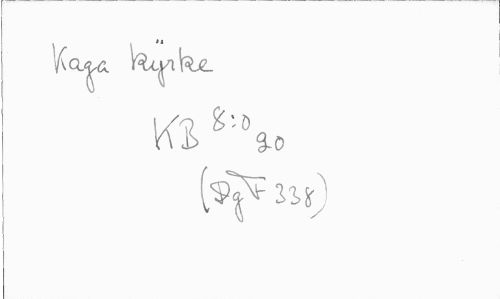 Kaga kÿrke
KB 8:0 90
(DgF 338)